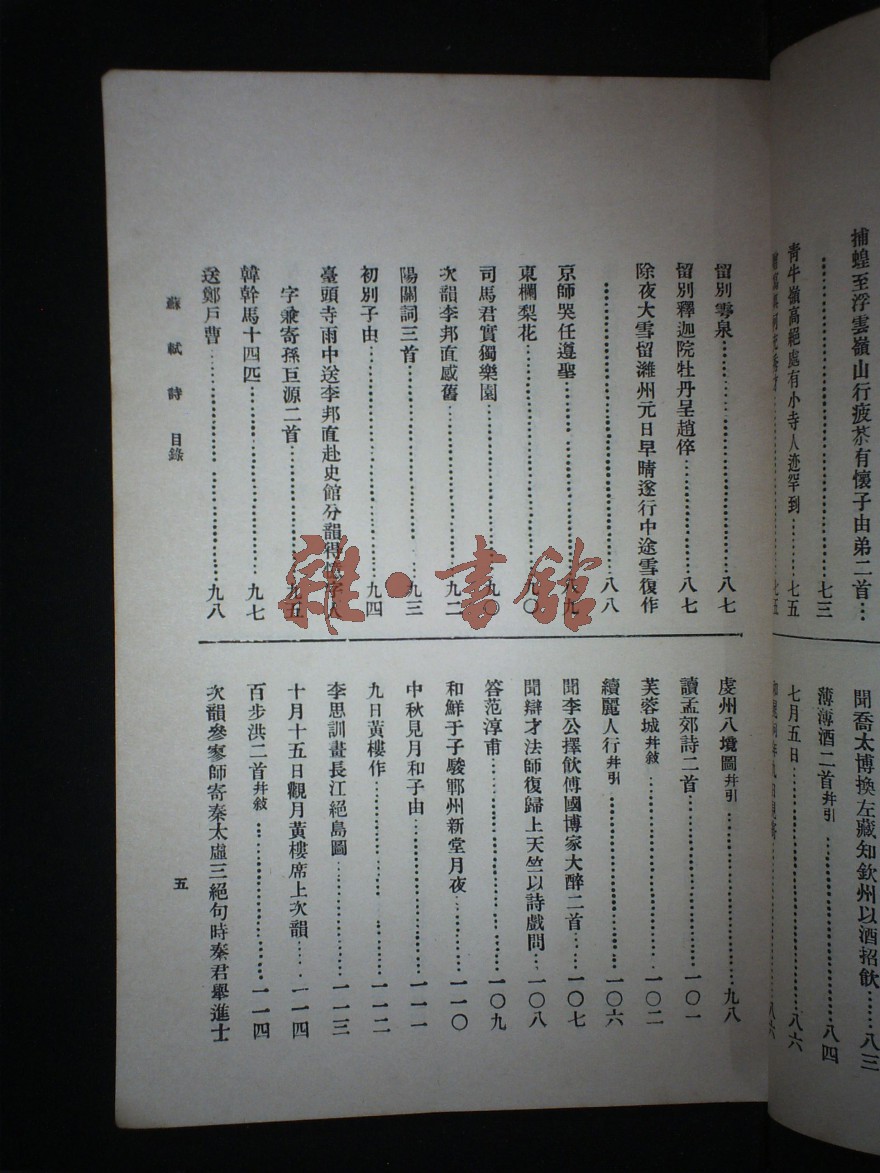 捕蝗至浮雲嶺山行疲苶有懷子由弟二首…
………………七三
青牛嶺高絕處有小寺人迹罕到………七五
聞喬太博換左藏知欽州以酒招飲……八三
薄薄酒二首并引………………八四
七月五日………………八六
留別雩泉………………八七
留別釋迦院牡丹呈趙倅………八七
除夜大雪留濰州元日早晴遂行中途雪復作
………………八八
京師哭任遵聖………………八九
東欄梨花………………九〇
司馬君實獨樂園………………九〇
次韻李邦直感舊………………九二
陽關詞三首………………九三
初別子由………………九四
臺頭寺雨中送李邦直赴史館分韻得 字人
字兼寄孫巨源二首………………九五
韓幹馬十四匹………………九七
送鄭戶曹………………九八
虔州八境圖并引………………九八
讀孟郊詩二首………………一〇一
芙蓉城并敘………………一〇二
續麗人行并引………………一〇六
聞李公擇飲傅國博家大醉二首……一〇七
聞辯才法師復歸上天竺以詩戲問…一〇八
答范淳甫………………一〇九
和鮮于子駿鄆州新堂月夜………一一〇
中秋見月和子由………………一一一
九日黃樓作………………一一二
李思訓畫長江絕島圖………………一一三
十月十五日觀月黃樓席上次韻……一一四
百步洪二首并敘………………一一四
次韻參寥師寄秦太虛三絕句時秦君舉進士
蘇軾詩 目錄
五
雜·書館